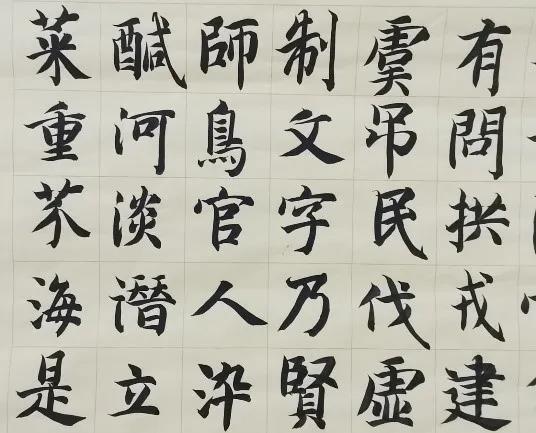 菜重芥海是
醎河淡潛立
師鳥官人染
制文字乃賢
虞吊民伐虛
有問拱戎建